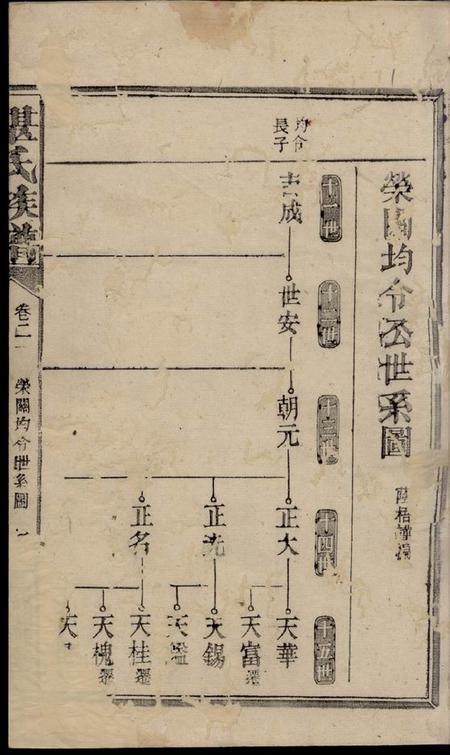 榮關均令公世系圖
十一世
十二世
十三世
十四世
十五世
均令
長子
吉成
世安
朝元
正大
正洗
正名
天華
天富遷
天錫
天鑑
天桂遷
天槐遷
天
氏族譜
卷二
榮關均令世系圖